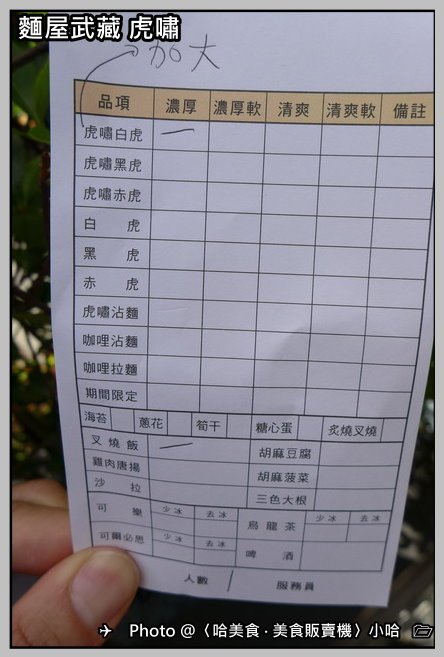 麵屋武藏 虎嘯
加大
品項 濃厚 濃厚軟 清爽 清爽軟 備註
虎嘯白虎 一
虎嘯黑虎
虎嘯赤虎
白 虎
黑 虎
赤 虎
虎嘯沾麵
咖哩沾麵
咖哩拉麵
期間限定
海苔 蔥花 筍干 糖心蛋 炙燒叉燒
叉燒飯 一 胡麻豆腐
雞肉唐揚 胡麻菠菜
沙 拉 三色大根
可 樂 少冰 去冰 烏龍茶 少冰 去冰
可爾必思 少冰 去冰 啤 酒
人數 / 服務員
Photo @〈哈美食·美食販賣機〉小哈